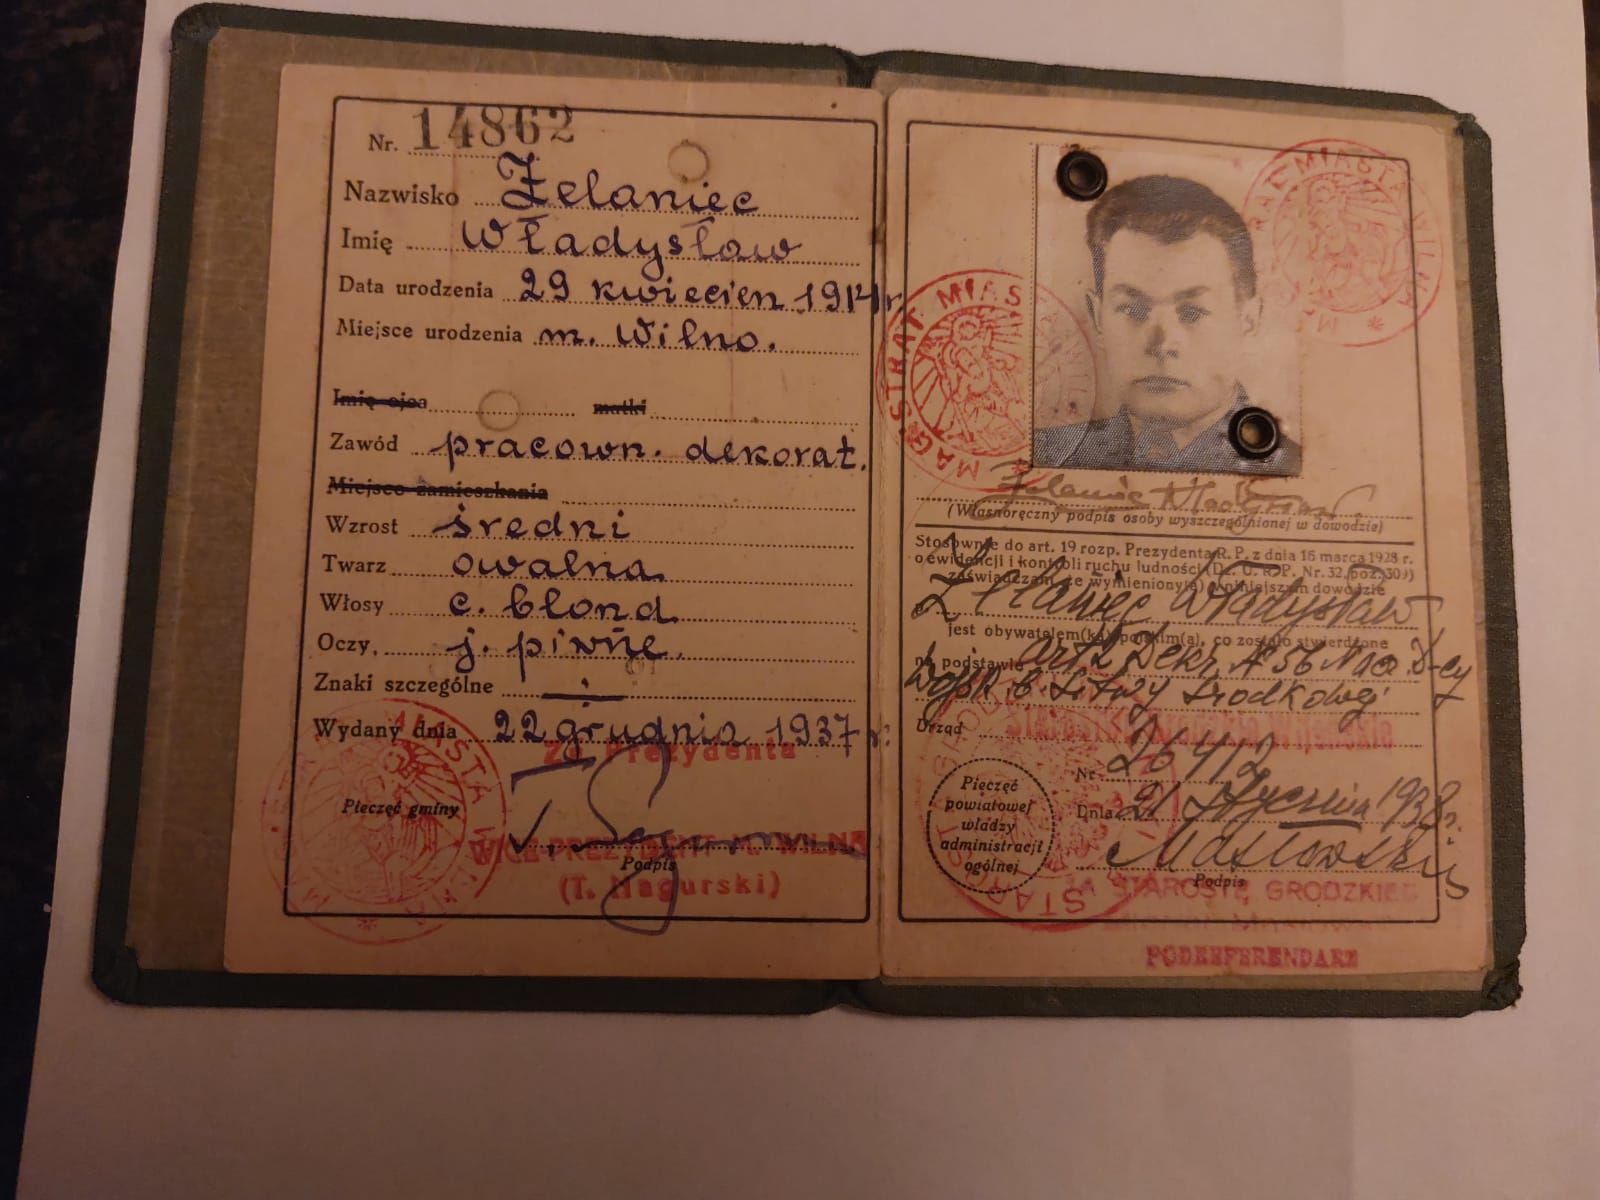 Nr. 14862
Nazwisko Żelaniec
Imię Władysław
Data urodzenia 29 kwiecien 1914 r.
Miejsce urodzenia m. Wilno.
Imię ojca matki
Zawód pracown. dekorat.
Miejsce zamieszkania
Wzrost średni
Twarz owalna
Włosy c. blond
Oczy, j. piwne.
Znaki szczególne
Wydany dnia 22 grudnia 1937 r.
Za Prezydenta
Pieczęć gminy
VICE-PREZYDENT M. WILNA
Podpis
(T. Nagurski)
MAGISTRAT MIASTA WILNA
MAGISTRAT MIASTA WILNA
Żelaniec Władysław
(Własnoręczny podpis osoby wyszczególnionej w dowodzie)
Stosownie do art. 19 rozp. Prezydenta R. P. z dnia 16 marca 1928 r.
o ewidencji i kontroli ruchu ludności (Dz. U. R. P. Nr. 32, poz. 309)
zaświadczam, że wymieniony(a) w niniejszym dowodzie
Żelaniec Władysław
jest obywatelem(ką) polskim(ą), co zostało stwierdzone
na podstawie art 2 Dekr. № 56 Nacz. D-cy
Wojsk b. Litwy Środkowej
Urząd
Nr. 26412
Pieczęć
powiatowej
władzy
administracji
ogólnej
Dnia 21 stycznia 1938 r.
Podpis
ZA STAROSTĘ GRODZKIEGO
PODREFERENDARZ